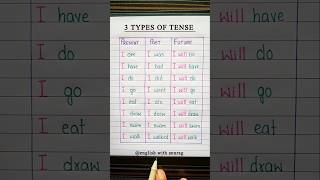 3 TYPES OF TENSE
Present Past Future
I am I was I will be
I have I had I will have
I do I did I will do
I go I went I will go
I eat I ate I will eat
I draw I drew I will draw
I swim I swam I will swim
I walk I walked I will walk
@english with anurag
I have
I do
I go
I eat
I draw
will have
will do
will go
will eat
will draw